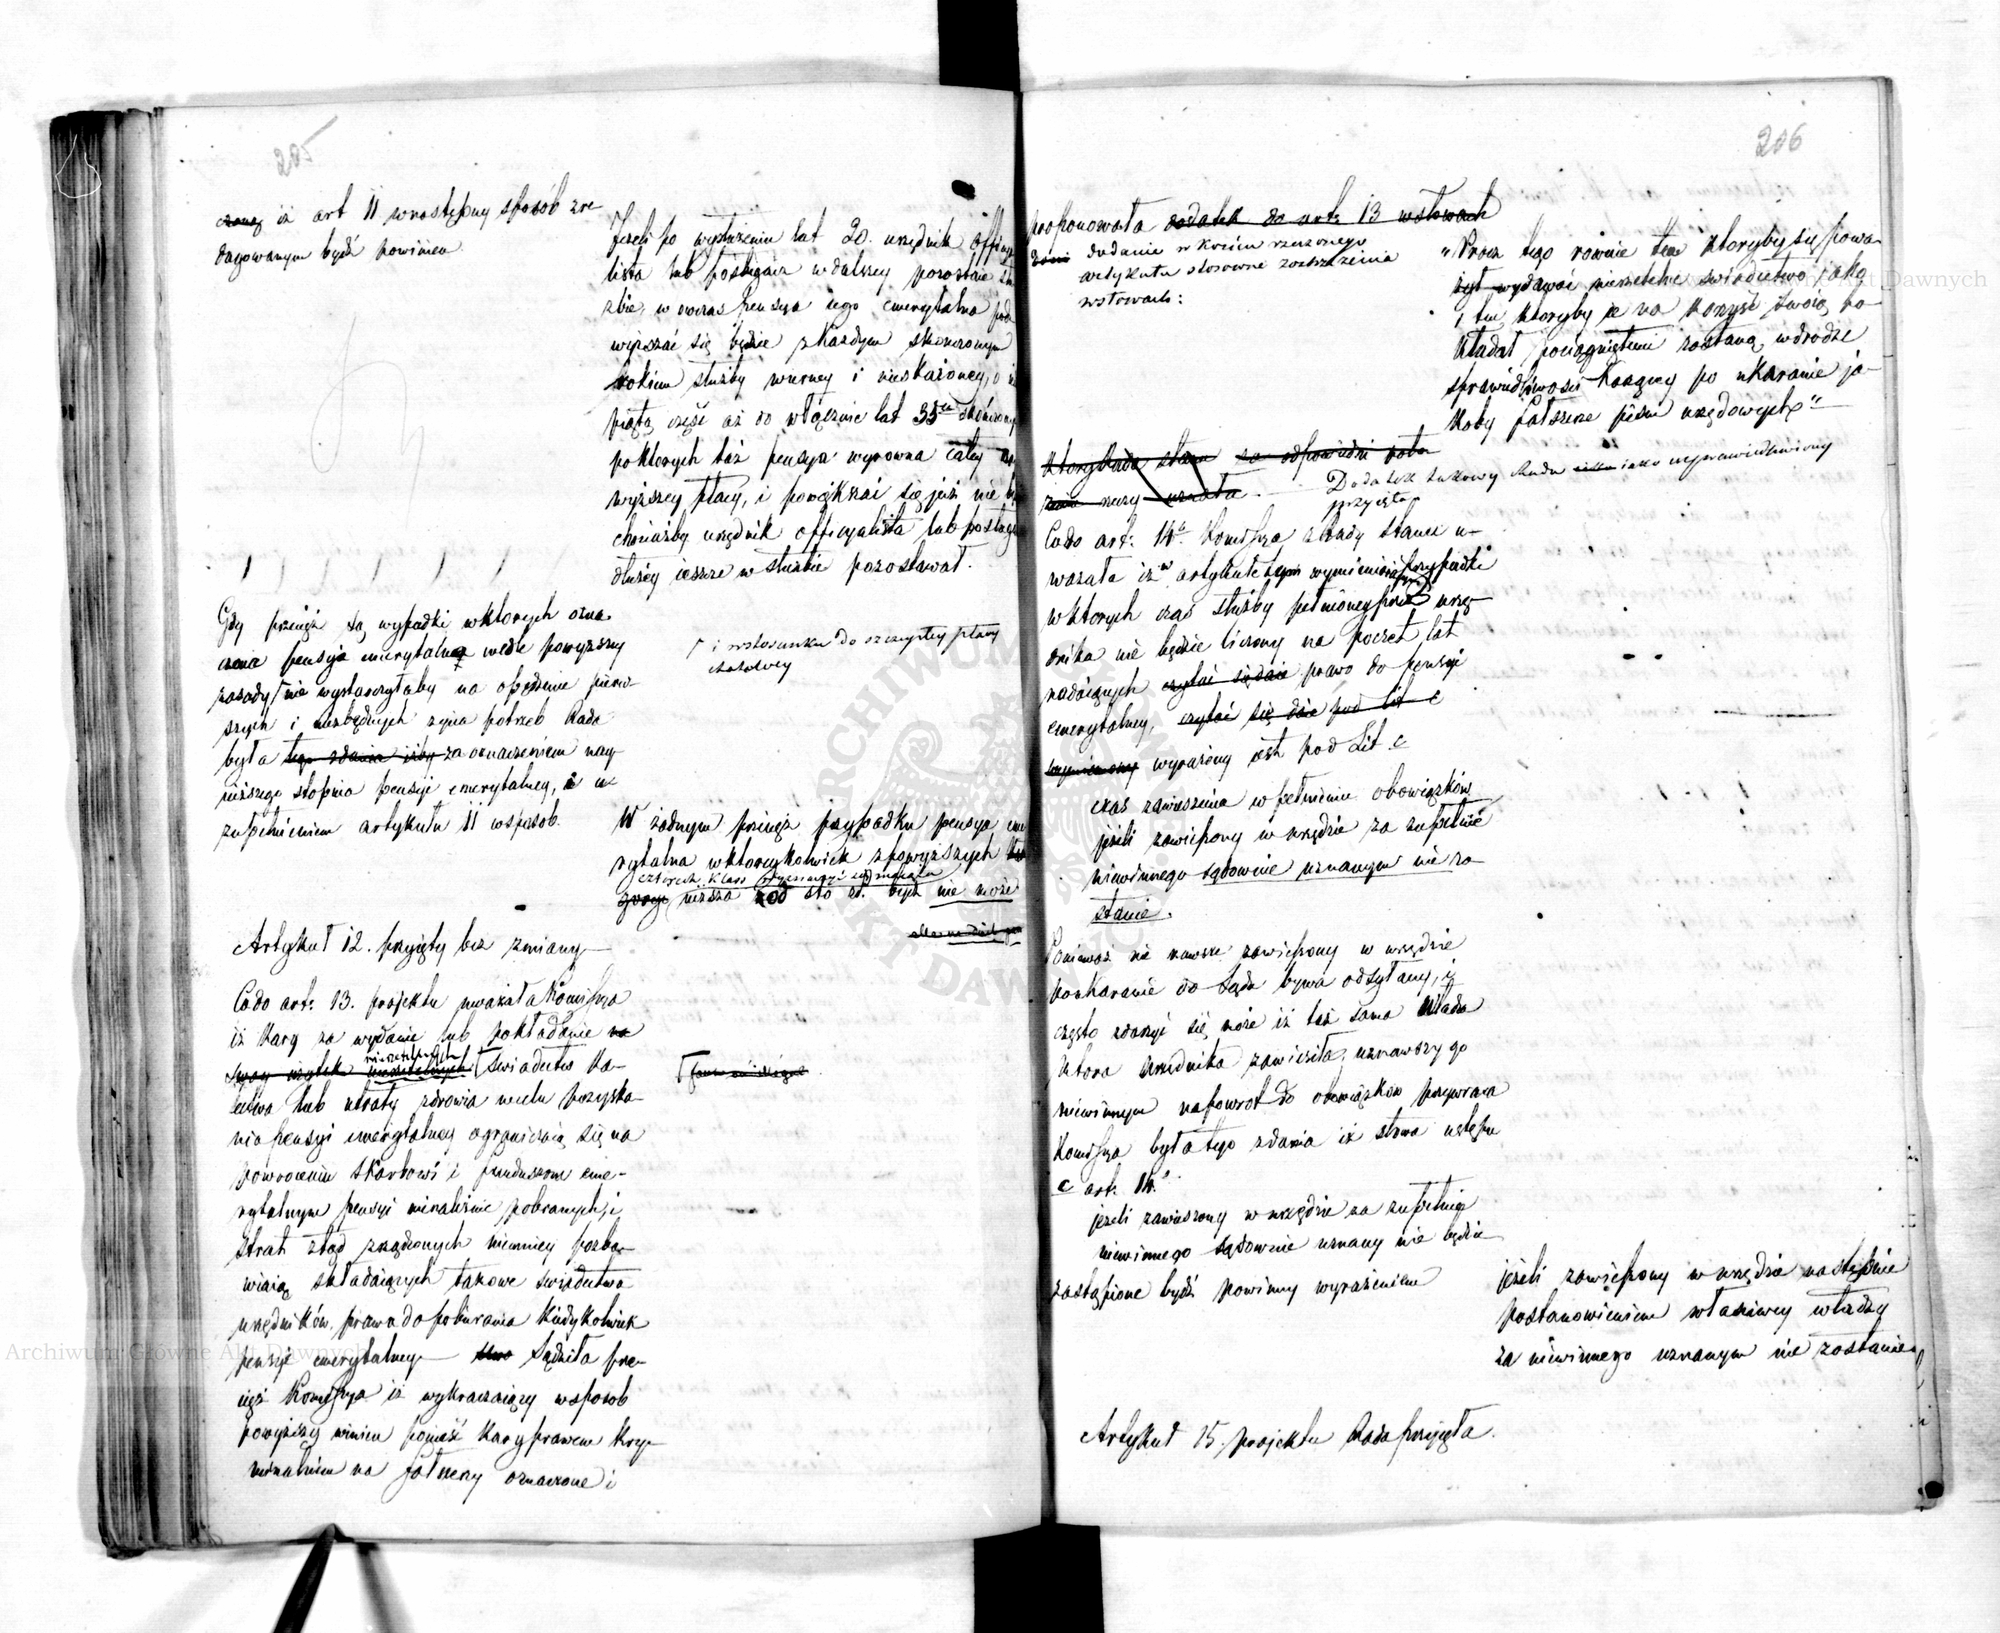 205
czoney iż art 11 w następny sposób zre-
dagowanym bydź powinien
Jeżeli po wysłużeniu lat 20. urzędnik officya
lista lub posługacz w dalszey pozostaie słu
zbie, w owczas pensya iego emerytalna pod
wyższać się będzie z każdym skonczonym
rokiem służby wierney i nieskażoney, o ie
piątą część aż do włącznie lat 35ciu skończony
po ktorych taż pensya wyrowna całey nay
wyższey płacy, i powiększać się już nie bę
chociażby urzędnik officyalista lub posługa
dłużey ieszcze w służbie pozostawał.
Gdy przecięż są wypadki w ktorych ozna-
czenie pensya emerytalna wedle powyższey
zasady nie wystarczyłaby na opędzenie pierw-
szych i niezbędnych życia potrzeb Rada
była tego zdania iżby za oznaczeniem nay-
niższego stopnia pensyi emerytalney, i u-
zupełnieniem artykułu 11 w sposób.
i w stosunku do szczupłey płacy
etatowey
W żadnym przecięż przypadku pensya eme
rytalna w ktoreykolwiek z powyższych
czterech Klass
niższa od sto zł. bydź nie może
Artykuł 12. przyięty bez zmiany
Co do art: 13. projektu uważała Komissya
iż kary za wydanie lub pokładanie na
swoy użytek nierzetelnych świadectw ka-
lectwa lub utraty zdrowia w celu pozyska-
nia pensyi emerytalney ograniczaią się na
powroceniu skarbowi i funduszom eme-
rytalnym pensyi nienależnie pobranych, i
strat ztąd zrządzonych niemniey pozba-
wiaią składaiących takowe świadectwa
urzędników, prawa do pobierania kiedykolwiek
pensyi emerytalney Sądziła prze-
cięż Komissya iż wykraczaiący w sposób
powyższy winien ponieść kary prawem kry-
minalnem na fałszerzy oznaczone i
206
proponowała dodatek do art: 13 w słowach
dodanie w końcu rzeczonego
artykułu stosowne zastrzeżenia
w słowach:
„Procz tego rownie ten ktoryby się powa-
żył wydawać nierzetelne świadectwo, iako
i ten ktoryby je na korzyść swoią po-
kładał pociągniętemi zostaną w drodze
sprawiedliwości karzącey po ukaranie ja-
koby fałszerze pism urzędowych"
Dodatek takowy Rada iako usprawiedliwiony
przyięła
Co do art: 14o. Komissya z Rady Stanu u-
wazała iż w artykule tym wymienione są przypadki
w ktorych czas służby pełnioney przez urzę-
dnika nie będzie liczony na poczet lat
nadaiących czytać się daie prawo do pensyi
emerytalney, czytać się daie pod lit c
wyrażony iest pod Lit c
czas zawieszenia w pełnieniu obowiązków
jeżeli zawieszony w urzędzie za zupełnie
niewinnego sądownie uznanym nie zo-
stanie.
Ponieważ nie zawsze zawieszony w urzędzie
po ukaranie do Sądu bywa odsyłany, i
często zdarzyć się może iż taż sama Władza
ktora urzędnika zawiesiła, uznawszy go
niewinnym napowrot do obowiązkow przywraca
Komissya była tego zdania iż słowa ustępu
c art: 14.o
jeżeli zawieszony w urzędzie za zupełnie
niewinnego sądownie uznany nie będzie
zastąpione bydź powinny wyrażeniem
jeżeli zawieszony w urzędzie następnie
postanowieniem właściwey władzy
za niewinnego uznanym nie zostanie
Artykuł 15. projektu Rada przyięła.
Archiwum Główne Akt Dawnych